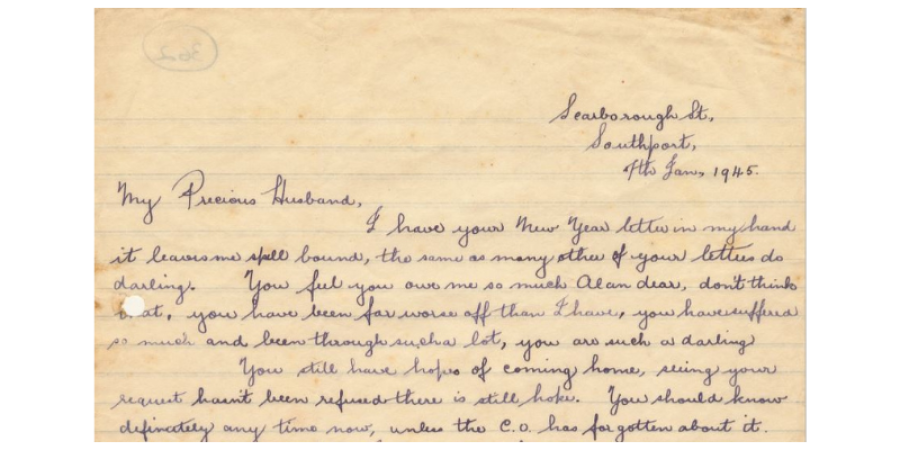 362
Scarborough St.
Southport,
7th Jan, 1945.
My Precious Husband,
I have your New Year letter in my hand
it leaves me spell bound, the same as many other of your letters do
darling. You feel you owe me so much Alan dear, don't think
that, you have been far worse off than I have, you have suffered
so much and been through such a lot, you are such a darling
You still have hopes of coming home, seeing your
request hasn't been refused there is still hope. You should know
definately any time now, unless the C.O. has forgotten about it.